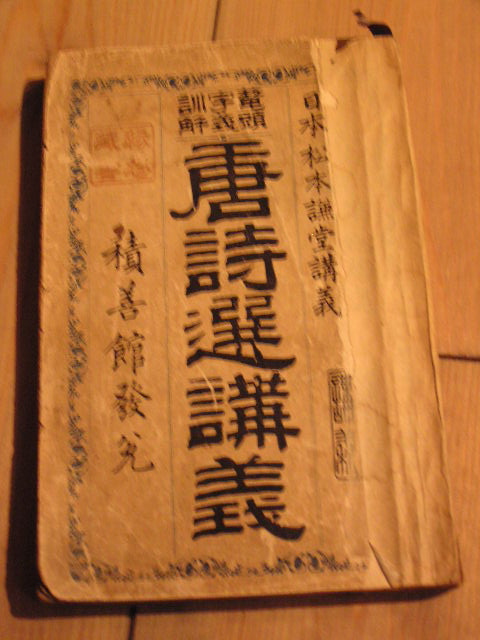 日本 松本謙堂講義
鼇頭
字義
訓解
唐詩選講義
積善館發兌